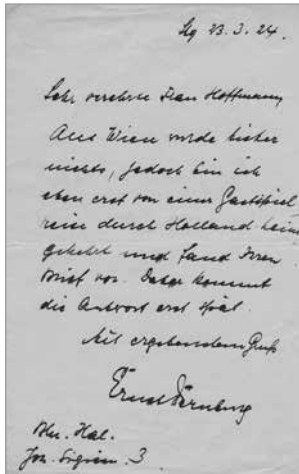 Sehr verehrte Frau Hoffmann,
Aus Wien wurde bisher
nichts, jedoch bin ich
eben erst von einer Gastspiel
reise durch Holland heim
gekehrt und fand Ihren
Brief vor. Daher kommt
die Antwort erst spät.
Mit ergebendem Gruß
Ernst
3